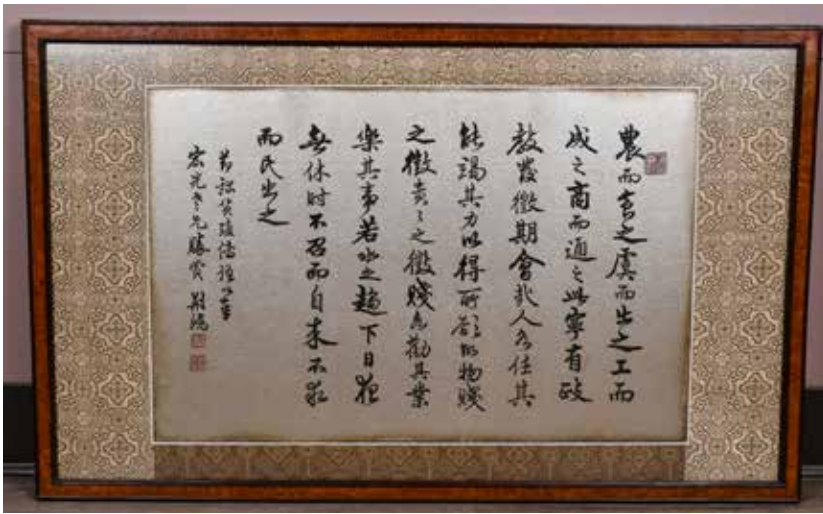 農而食之虞而出之工而
成之商而通之此寧有政
教發徵期會哉人各任其
能竭其力以得所欲故物賤
之徵貴々之徵賤各勸其業
樂其事若水之趨下日夜
無休時不召而自來不求
而民出之
節錄貨殖傳
宏光老兄勝賞